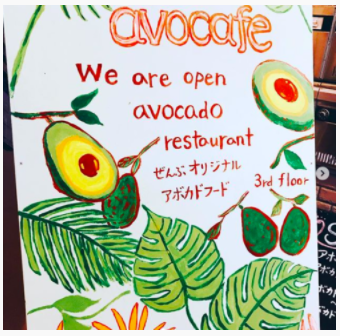 avocafe
We are open
avocado
restaurant
ぜんぶオリジナル
アボカドフード
3rd floor